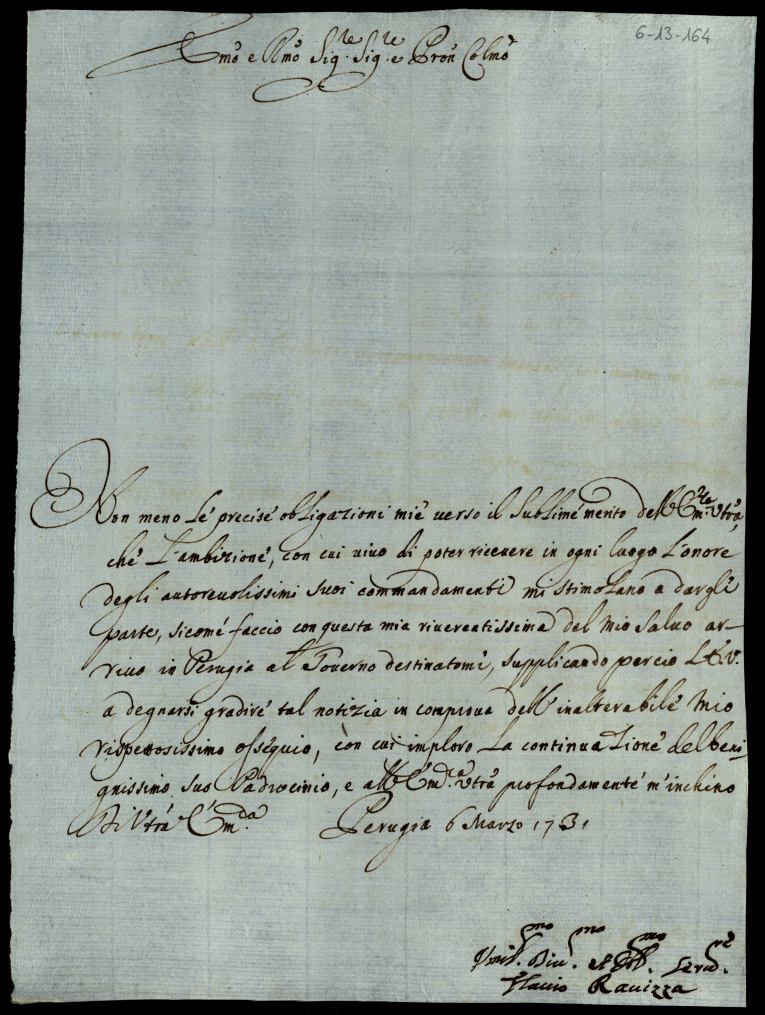 6-13-164
Emõ e Rmõ Sig.re Sig.re e Pron Colmõ
Non meno le precise obligazioni mie verso il sublime merito dell'Em.za Vtrã,
che l'ambizione, con cui vivo di poter ricevere in ogni luogo l'onore
degli autorevolissimi suoi commandamenti mi stimolano a dargli
parte, sicome faccio con questa mia riverentissima del mio salvo ar-
rivo in Perugia al Governo destinatomi, supplicando perciò L'E.V.
a degnarsi gradire tal notizia in comprova dell'inalterabile mio
rispettosissimo ossequio, con cui imploro la continuazione del beni-
gnissimo suo Padrocinio, e all'Em.za Vtrã profondamente m'inchino
Di Vtrã Em.za Perugia 6 Marzo 1731
Umil.mo Div.mo et Obb.mo Serv.re
Flavio Ravizza